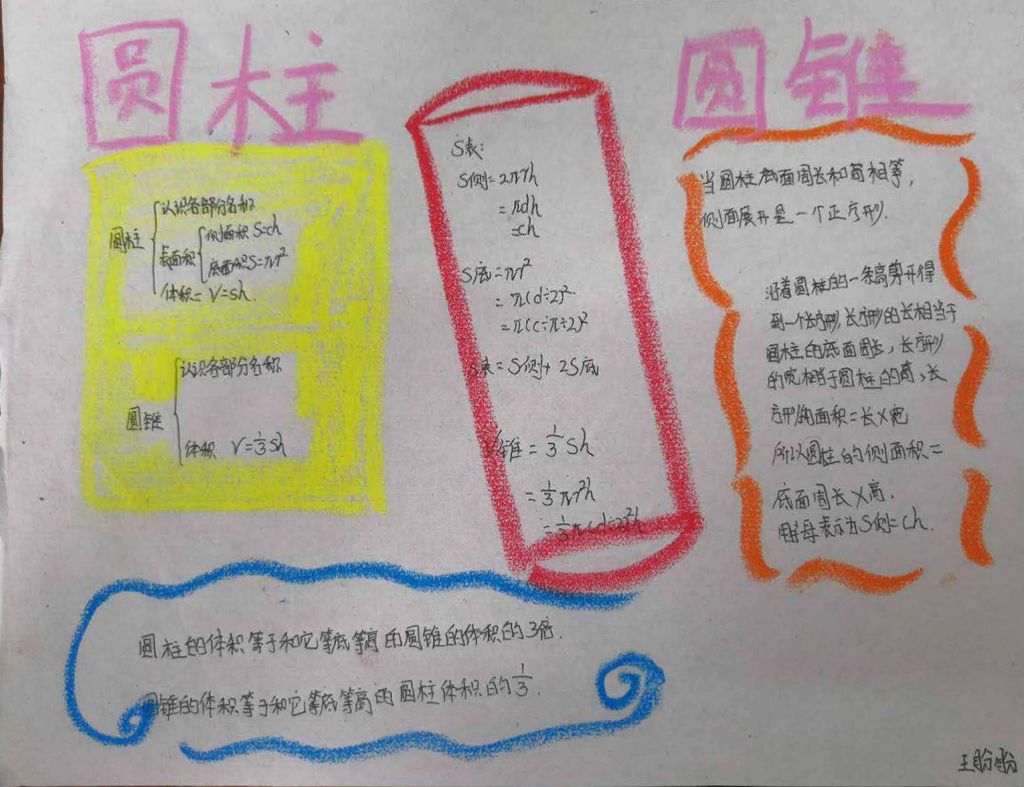 圆柱
圆锥
圆柱
认识各部分名称
表面积
侧面积 S=ch
底面积S=πr²
体积= V=sh.
圆锥
认识各部分名称
体积 V=⅓sh
S表:
S侧=2πrh
=πdh
=ch
S底=πr²
=π(d÷2)²
=π(c÷π÷2)²
S表=S侧+2S底
V锥=⅓Sh
=⅓πr²h
=⅓π(d÷2)²h
当圆柱底面周长和高相等,
侧面展开是一个正方形.
沿着圆柱的一条高剪开得
到一个长方形,长方形的长相当于
圆柱的底面周长,长方形
的宽相当于圆柱的高,长
方形的面积=长×宽
所以圆柱的侧面积=
底面周长×高.
用字母表示为S侧=Ch.
圆柱的体积等于和它等底等高的圆锥的体积的3倍.
圆锥的体积等于和它等底等高的圆柱体积的⅓.
王盼盼